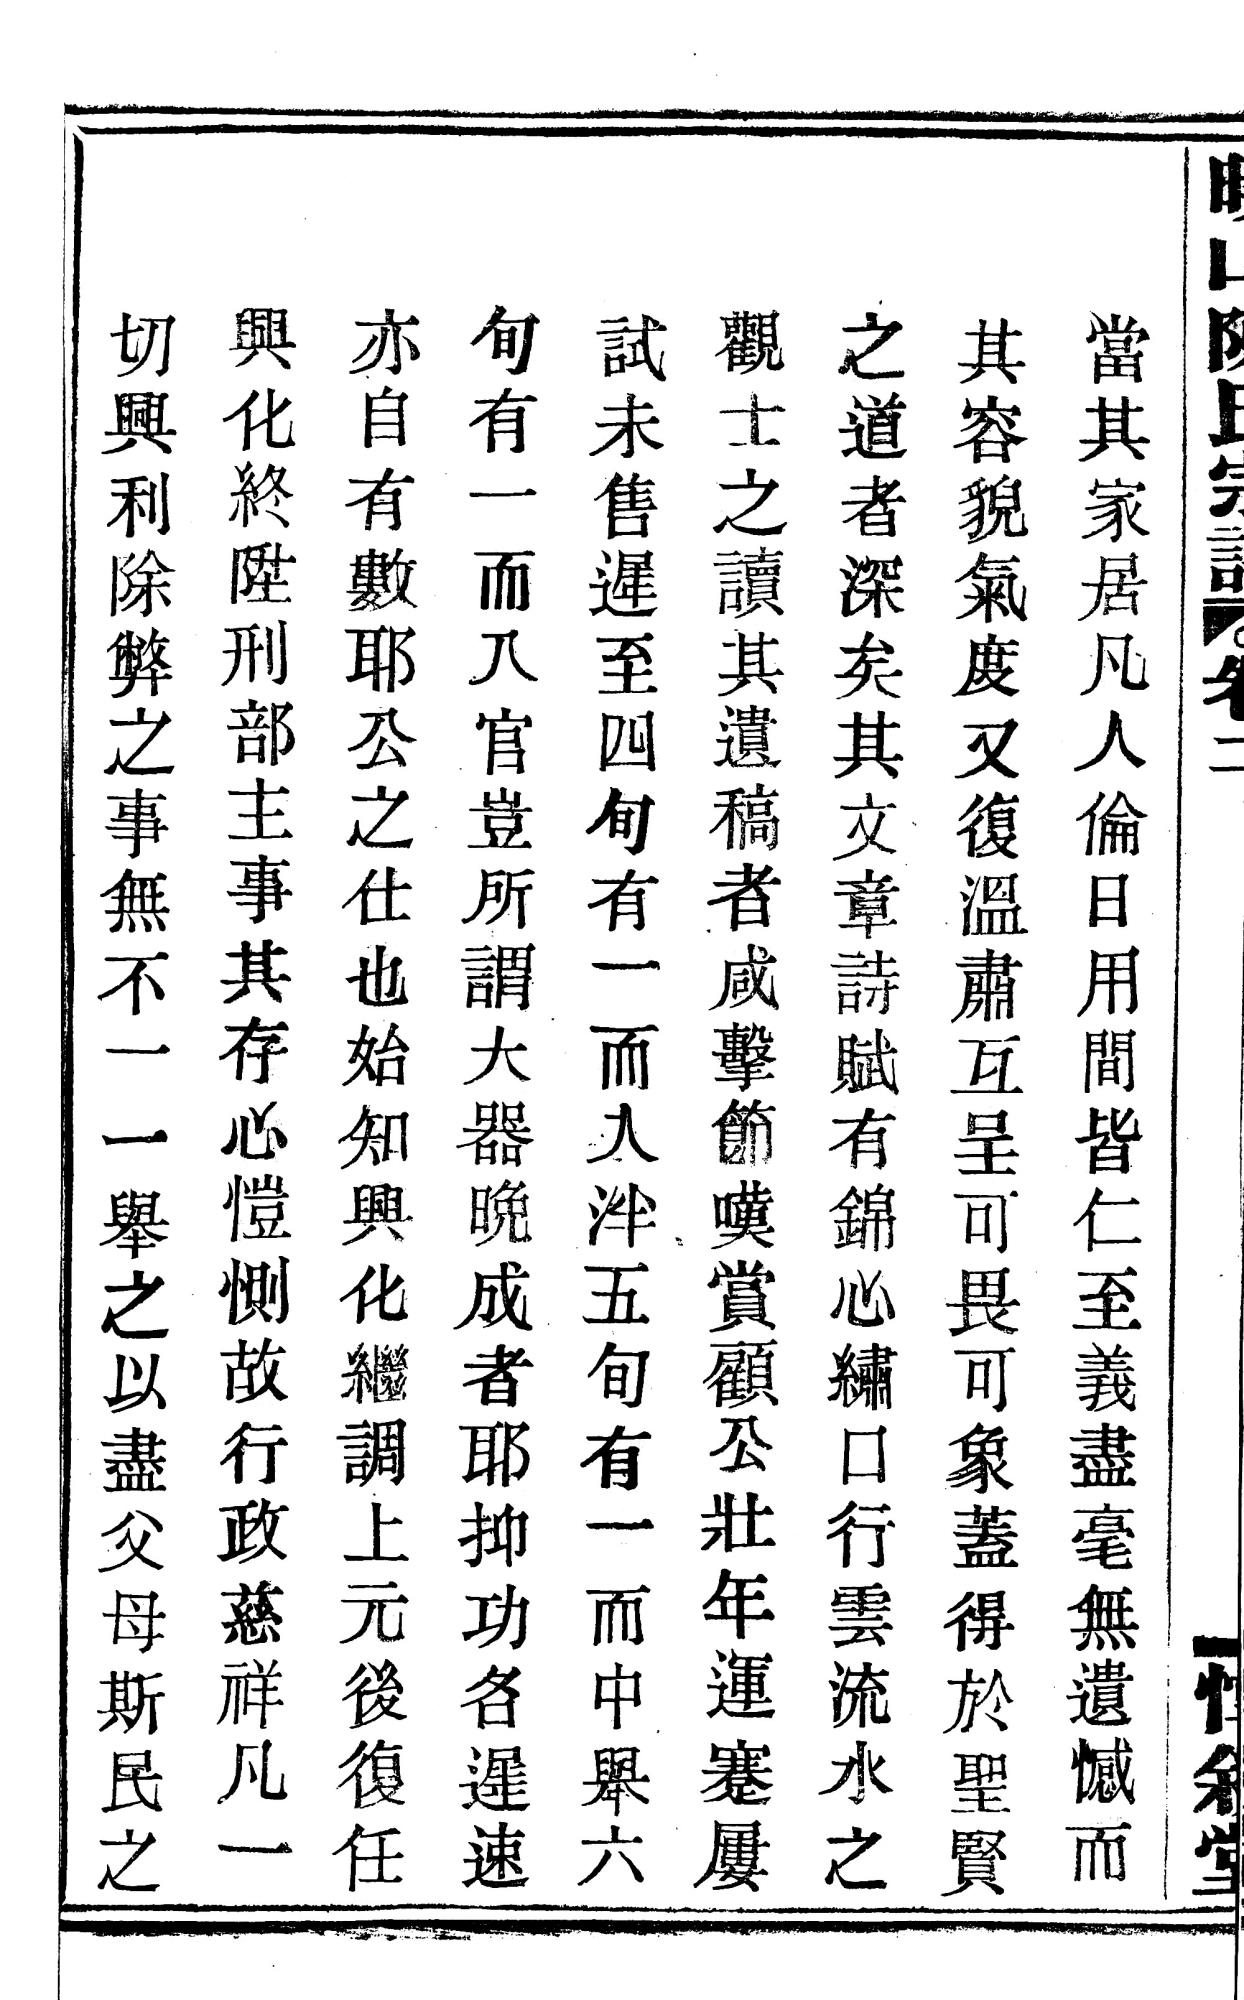 山陳氏宗譜 卷二
當其家居凡人倫日用間皆仁至義盡毫無遺憾而
其容貌氣度又復溫肅互呈可畏可象蓋得於聖賢
之道者深矣其文章詩賦有錦心繡口行雲流水之
觀士之讀其遺稿者咸擊節嘆賞顧公壯年運蹇屢
試未售遲至四旬有一而入泮五旬有一而中舉六
旬有一而入官豈所謂大器晚成者耶抑功名遲速
亦自有數耶公之仕也始知興化繼調上元後復任
興化終陞刑部主事其存心愷惻故行政慈祥凡一
切興利除弊之事無不一一舉之以盡父母斯民之